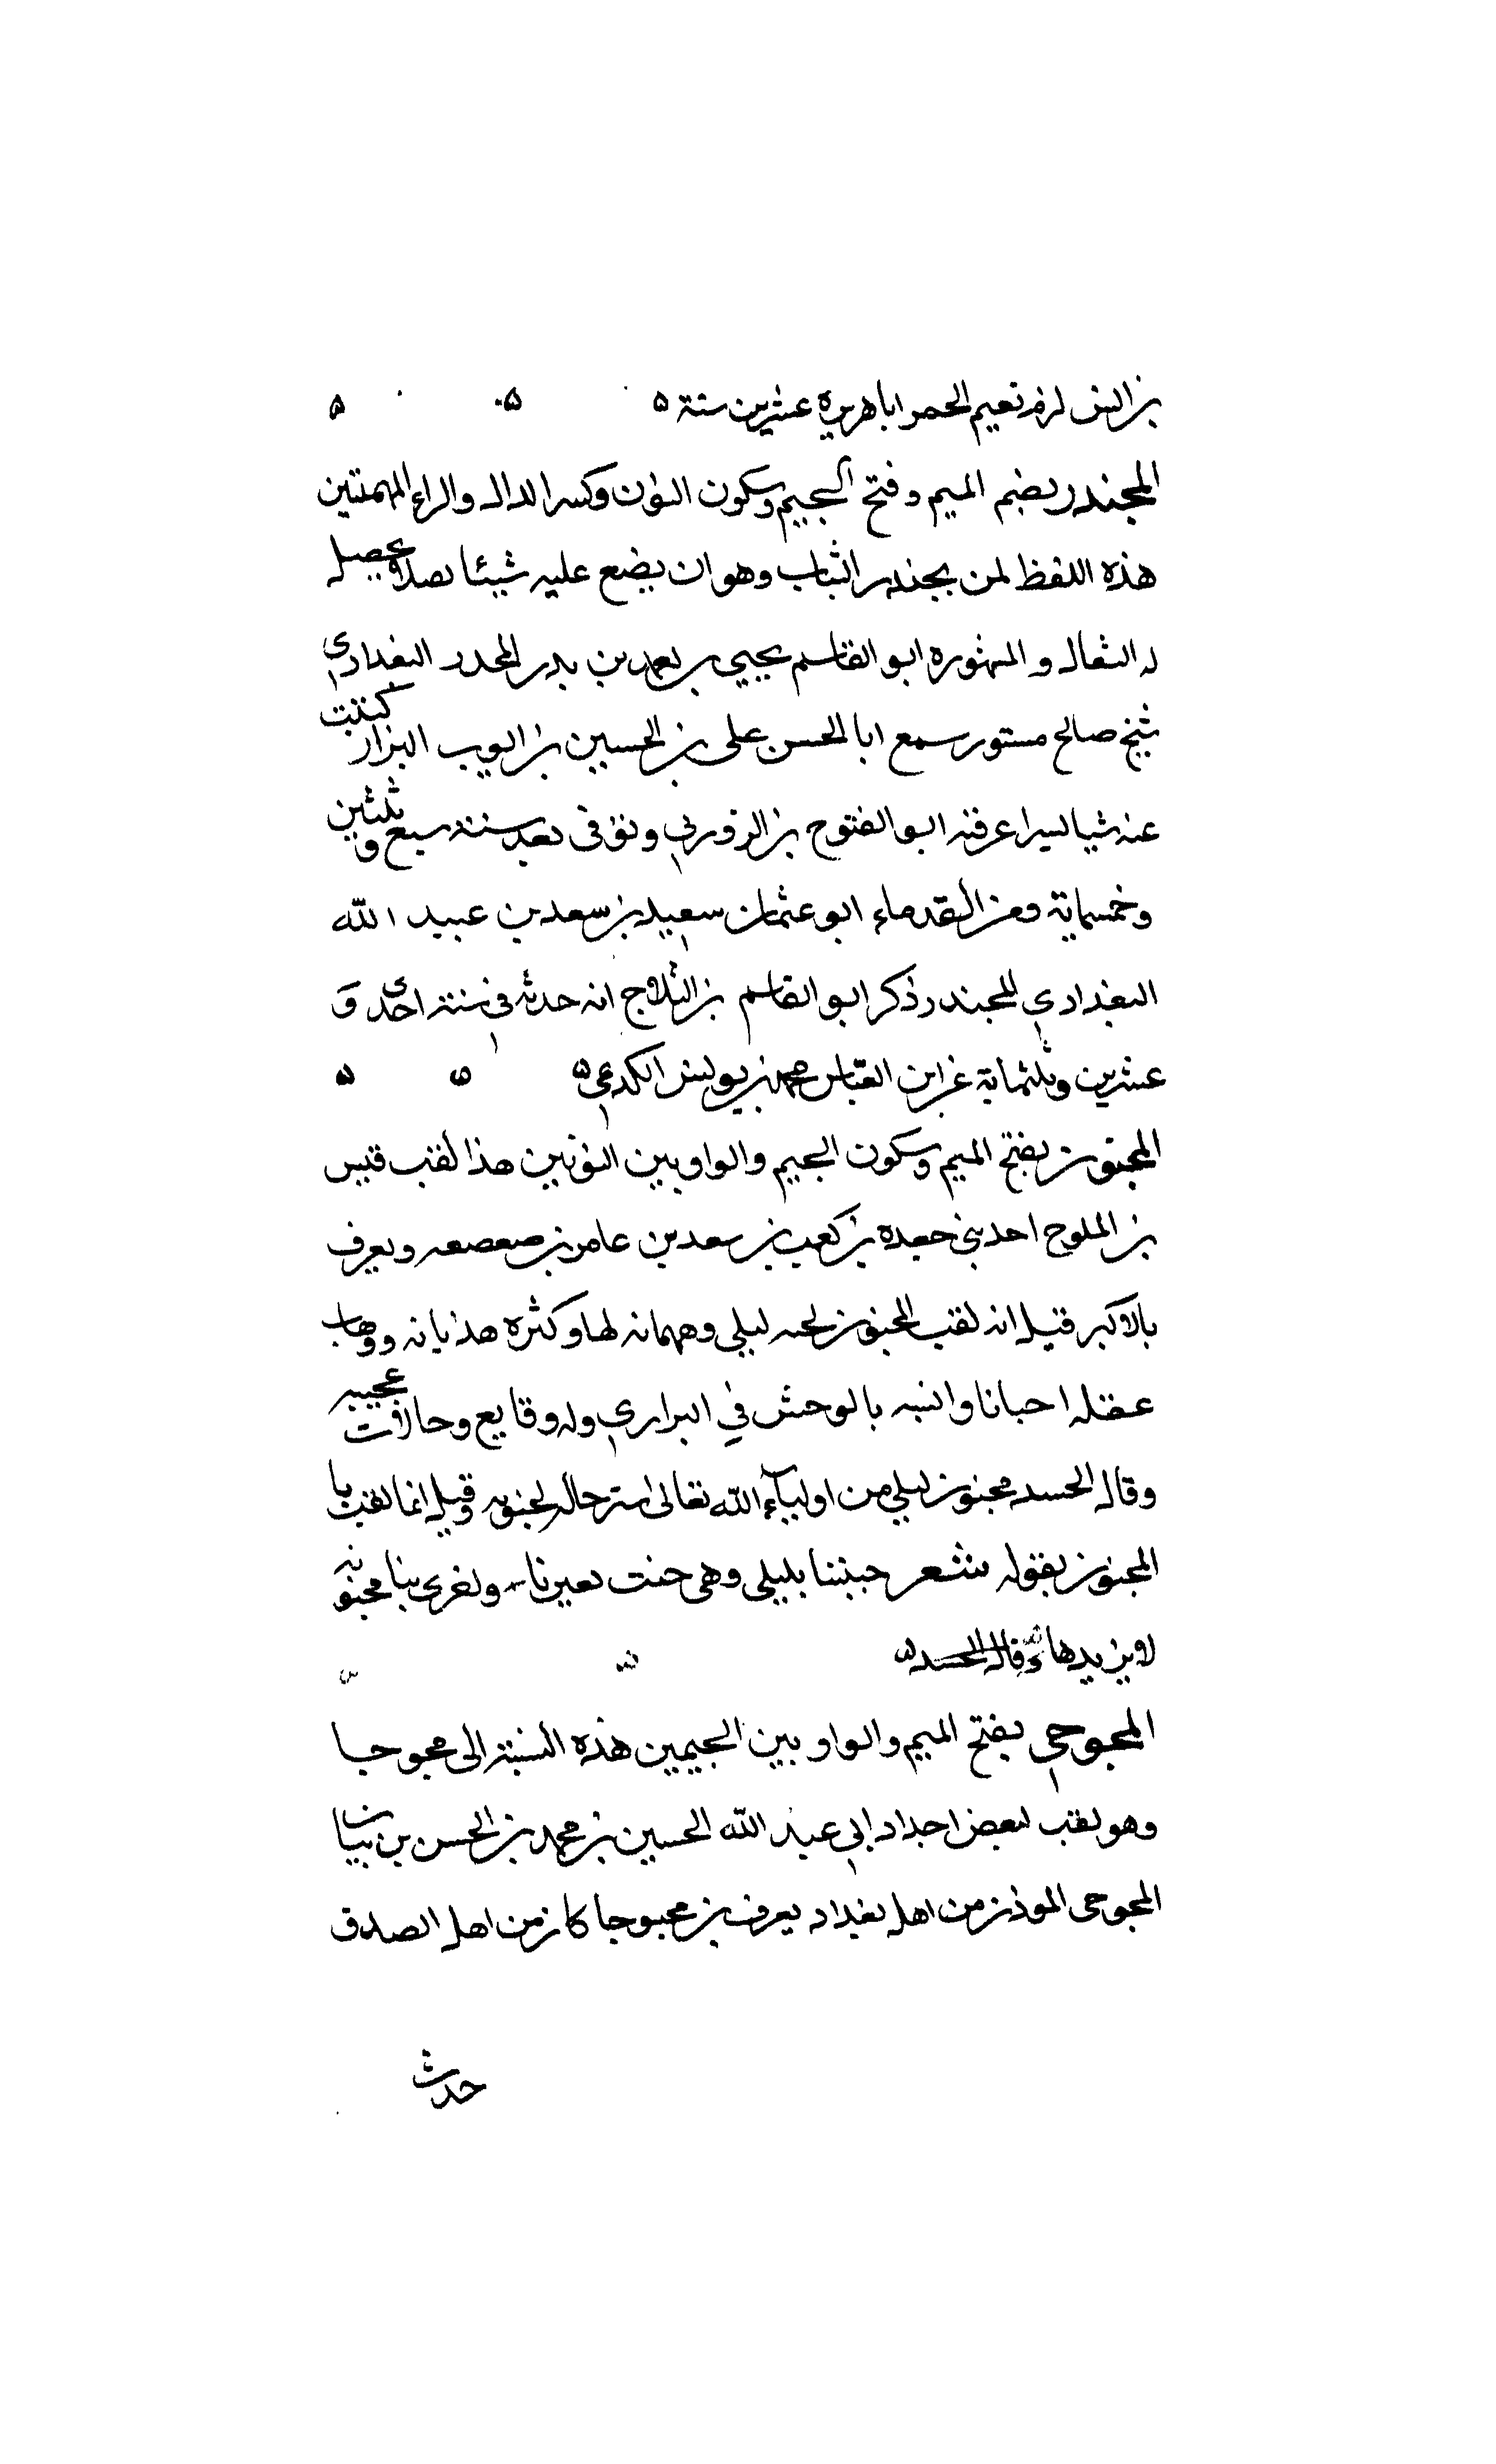 بن انس لزم نعيم المجمر ابا هريرة عشرين سنة ه ه ه
المجندر بضم الميم وفتح الجيم وسكون النون وكسر الدال والراء المهملتين
هذه اللفظ لمن يجندر الثياب وهو ان يضع عليه شيئا يصلا ويحصل
له الثقال و المشهوره ابو القاسم يحيي بن بدر المجندر البغدادي
شيخ صالح مستور سمع ابا الحسن علي بن الحسين بن ايوب البزار كتبت
عنه شيا يسيرا عرفنه ابو الفتوح بن وتوفى بعد سنة سبع وثلثين
وخمسماية ومن القدماء ابو عثمان سعيد بن سعد بن عبيد الله
البغدادي المجندر ذكر ابو القاسم بن الثلاج انه حدثه في سنة احدى و
عشرين وثلثماية عن ابن العباس محمد بن يونس الكديمي ه ه ه
المجنون بفتح الميم وسكون الجيم والواو بين النونين هذا لقب قيس
بن الملوح احد بني جعده بن كعب بن سعد بن عامر بن صعصعه ويعرف
بالاكبر قيل انه لقب المجنون لحبه ليلي وهيمانه لها وكثره هذيانه وذهاب
عقله احيانا وانسه بالوحش في البراري وله وقايع وحالات عجيبه
وقال الجنيد مجنون ليلي من اولياء الله تعالى ستر حاله بجنونه وقيل انما لقب با
المجنون بقوله شعر جننا بليلي وهي جنت بغيرنا واخرى بنا مجنونه
لا نريدها وقال الجنيد
المجوجي بفتح الميم والواو بين الجيمين هذه النسبة الى مجوجا
وهو لقب لبعض اجداد ابي عبد الله الحسين بن محمد بن الحسن بن بيان
المجوجي الموذن من اهل بغداد يعرف بن مجوجا كان من اهل الصدق
حدث